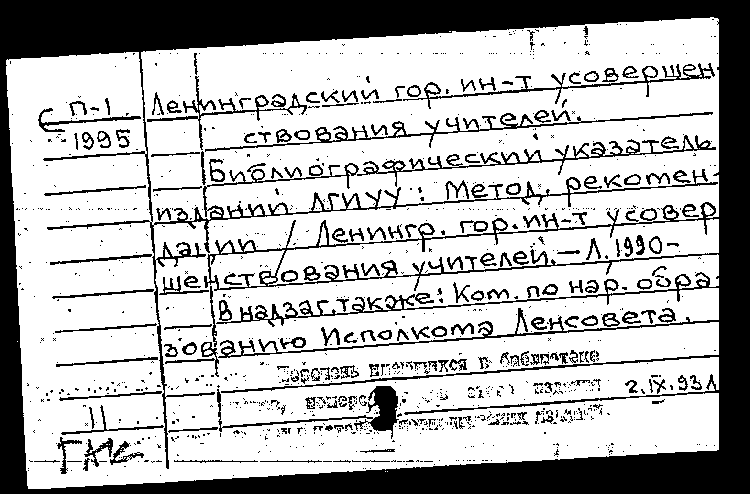 П-1
1995
Ленинградский гор. ин-т усовершен-
ствования учителей.
Библиографический указатель
изданий ЛГИУУ: Метод. рекомен-
дации / Ленингр. гор. ин-т усовер
шенствования учителей. — Л. 1990-
В надзаг. также: Ком. по нар. обра-
зованию Исполкома Ленсовета.
Перечень имеющихся в библиотеке
издания
2.IX.93 Л
11
ГАК